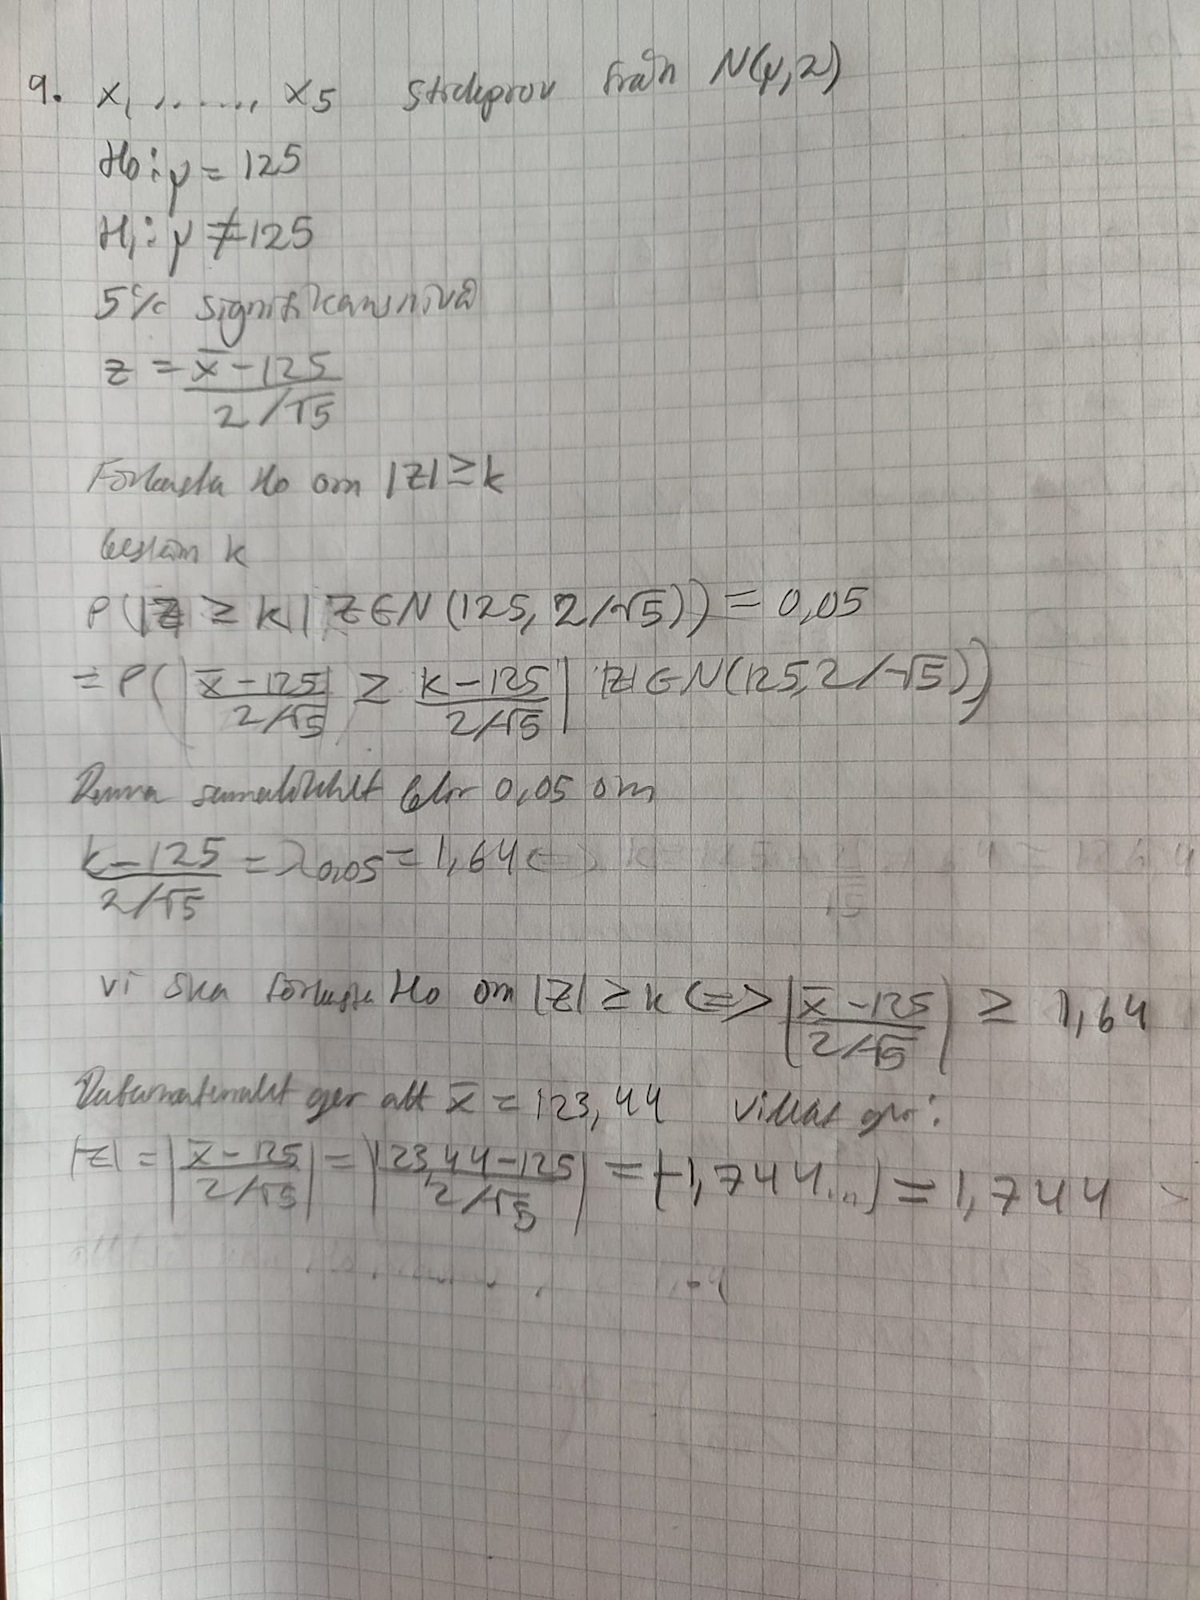 9. X₁ ......, X5 Stickprov från N(μ,2)
H0: μ = 125
H₁: μ ≠ 125
5% signifikansnivå
z = (x̄ - 125)/(2/√5)
Förkasta H0 om |Z| ≥ k
bestäm k
P(|Z| ≥ k | Z∈N(125, 2/√5)) = 0,05
= P(|(x̄ - 125)/(2/√5)| ≥ (k - 125)/(2/√5) | |Z| ∈ N(125, 2/√5))
Denna sannolikhet blir 0,05 om
(k - 125)/(2/√5) = λ0,05 = 1,64 <=>
vi ska förkasta H0 om |Z| ≥ k <=> |(x̄ - 125)/(2/√5)| ≥ 1,64
Datamaterialet ger att x̄ = 123,44 vilket ger:
|Z| = |(x̄ - 125)/(2/√5)| = |(123,44 - 125)/(2/√5)| = |-1,744...| = 1,744